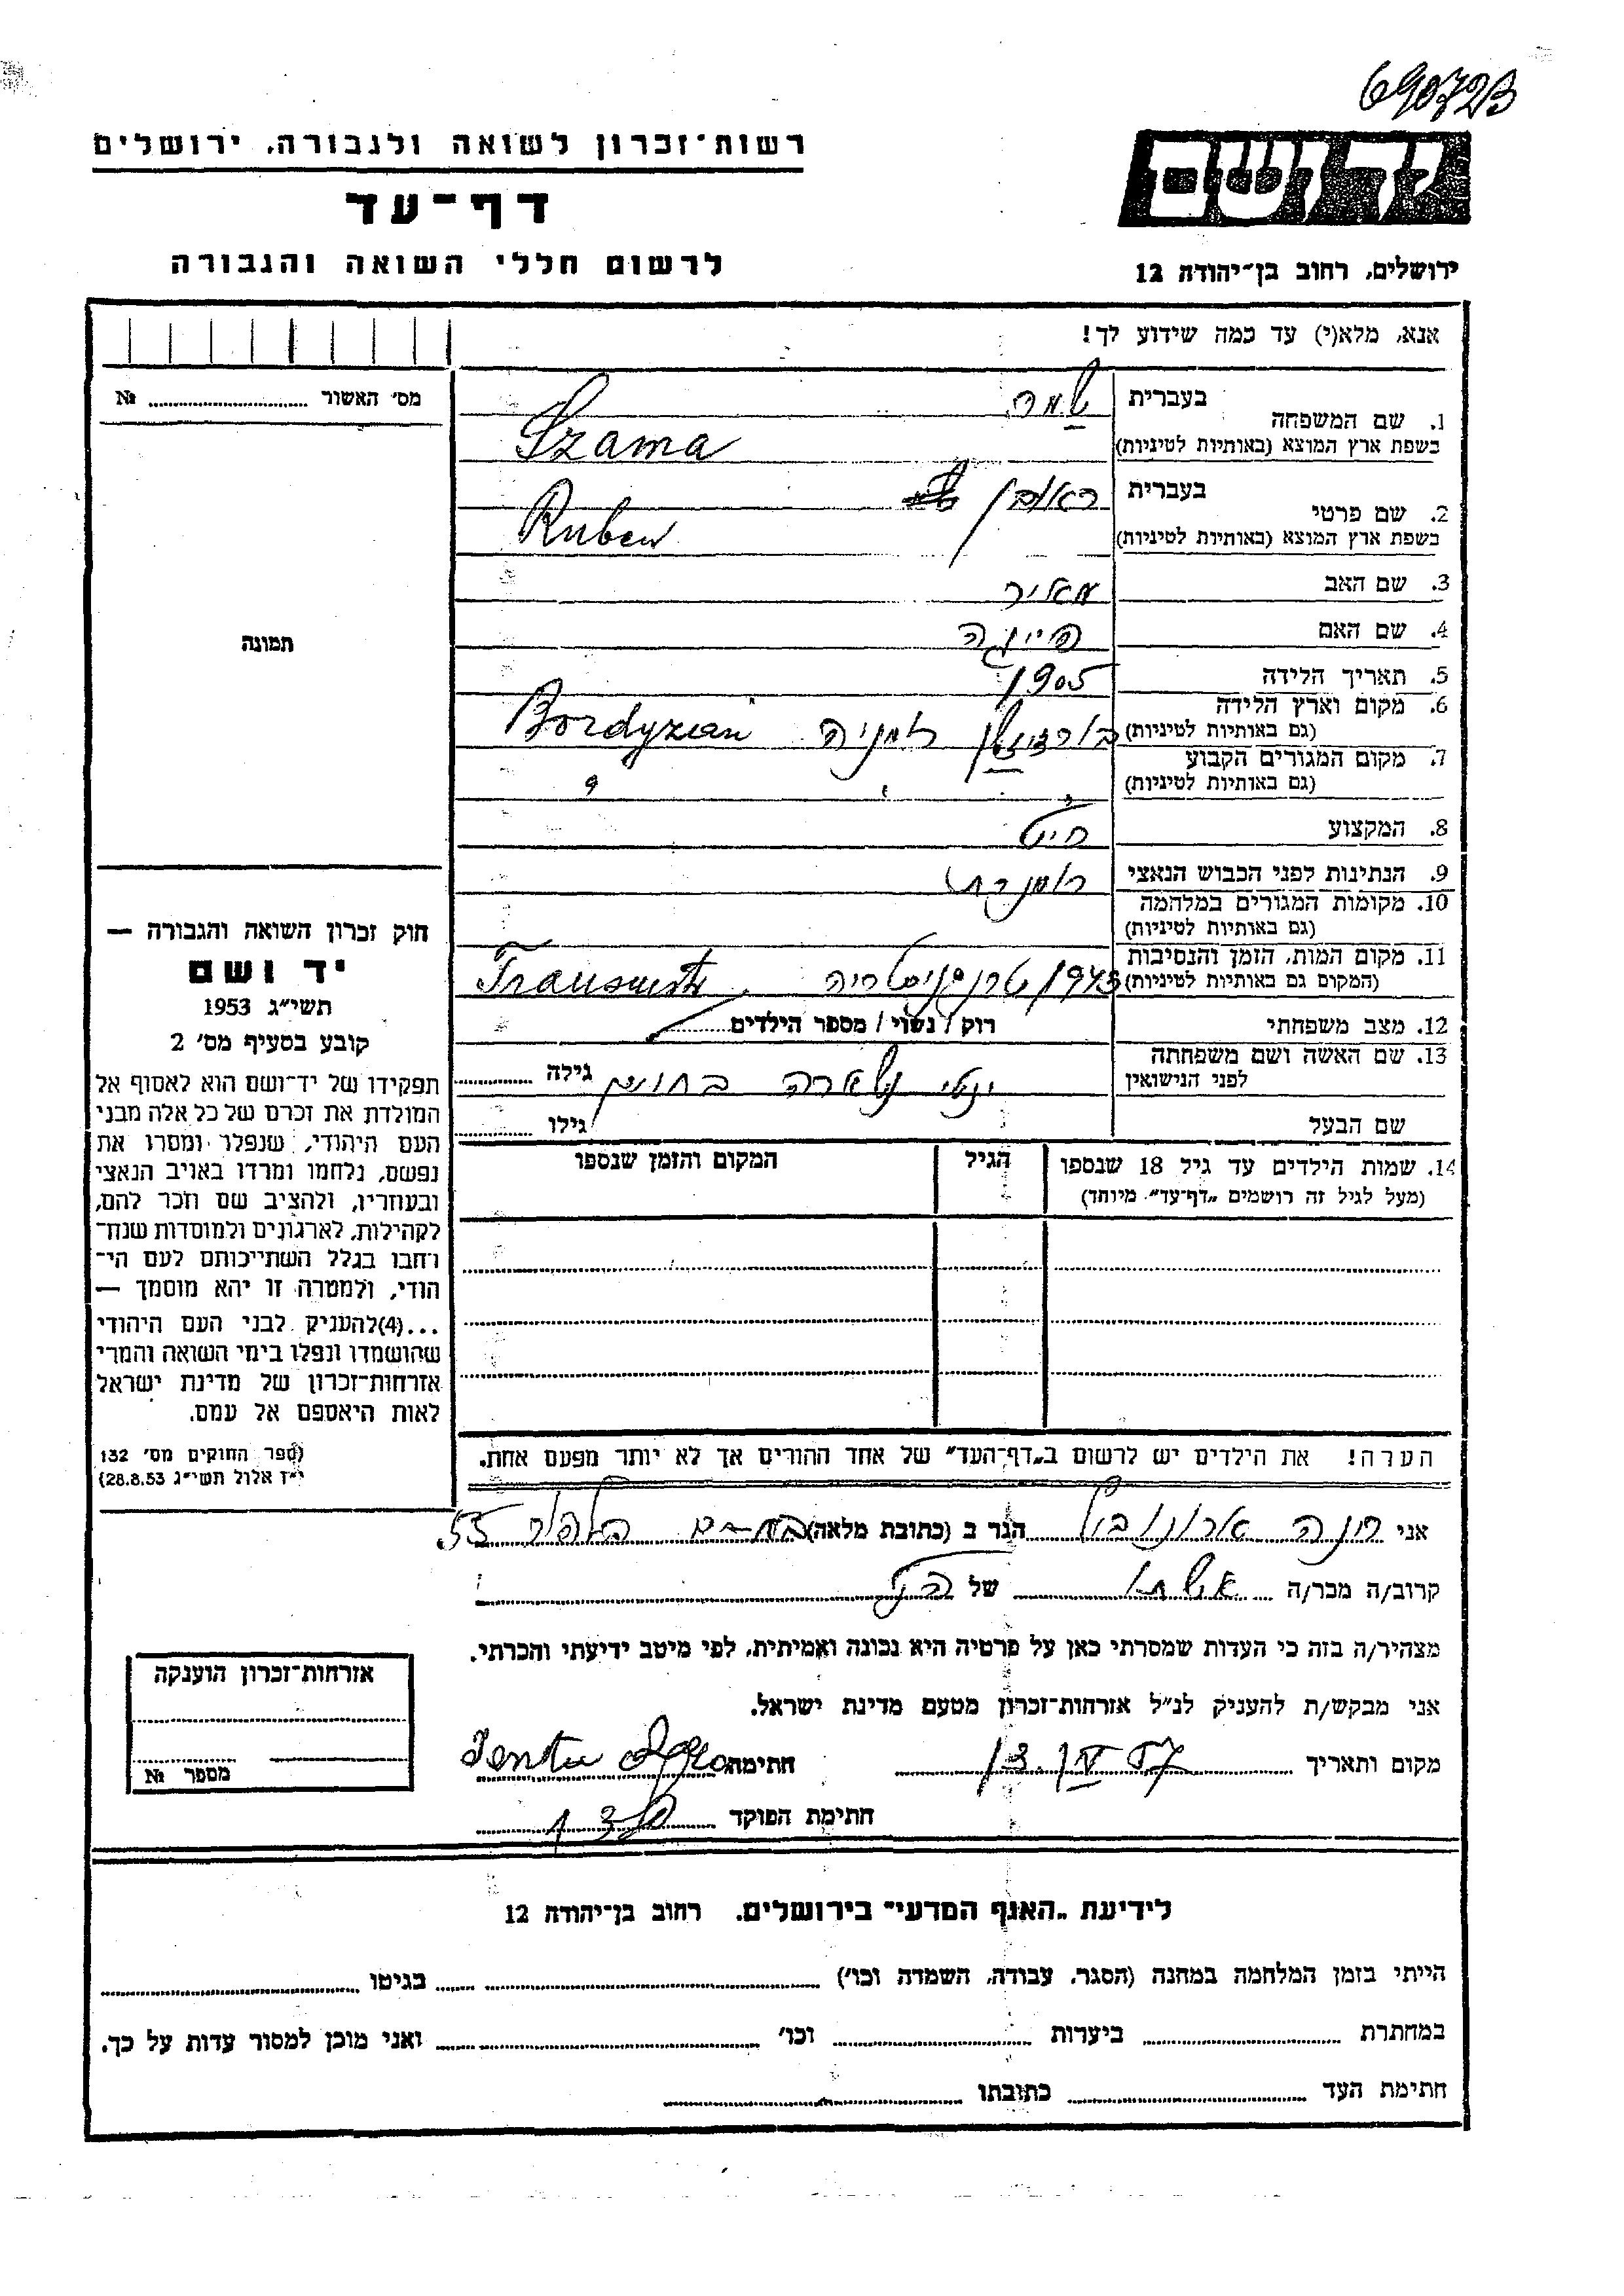 690723
רשות־זכרון לשואה ולגבורה, ירושלים
דף־עד
לרשום חללי השואה והגבורה
יד ושם
ירושלים, רחוב בן־יהודה 12
אנא, מלא(י) עד כמה שידוע לך!
מס׳ האשור № 
1. שם המשפחה
בעברית שמה
בשפת ארץ המוצא (באותיות לטיניות) Szama
2. שם פרטי
בעברית ראובן
בשפת ארץ המוצא (באותיות לטיניות) Ruben
3. שם האב מאיר
4. שם האם
5. תאריך הלידה 1905
6. מקום וארץ הלידה
(גם באותיות לטיניות) רומניה Bordyzian
7. מקום המגורים הקבוע
(גם באותיות לטיניות) " " "
8. המקצוע חייט
9. הנתינות לפני הכבוש הנאצי רומנית
10. מקומות המגורים במלחמה
(גם באותיות לטיניות)
11. מקום המות, הזמן והנסיבות
(המקום גם באותיות לטיניות) 1943 טרנסניסטריה
12. מצב משפחתי רוק / נשוי / מספר הילדים
13. שם האשה ושם משפחתה
לפני הנישואין גילה
שם הבעל גילו
14. שמות הילדים עד גיל 18 שנספו
(מעל לגיל זה רושמים „דף־עד" מיוחד)
הגיל
המקום והזמן שנספו
הערה! את הילדים יש לרשום ב„דף־העד" של אחד ההורים אך לא יותר מפעם אחת.
תמונה
חוק זכרון השואה והגבורה —
יד ושם
תשי״ג 1953
קובע בסעיף מס׳ 2
תפקידו של יד־ושם הוא לאסוף אל
המולדת את זכרם של כל אלה מבני
העם היהודי, שנפלו ומסרו את
נפשם, נלחמו ומרדו באויב הנאצי
ובעוזריו, ולהציב שם וזכר להם,
לקהילות, לארגונים ולמוסדות שנח־
רחבו בגלל השתייכותם לעם הי־
הודי, ולמטרה זו יהא מוסמך —
...(4)להעניק לבני העם היהודי
שהושמדו ונפלו בימי השואה והמרי
אזרחות־זכרון של מדינת ישראל
לאות היאספם אל עמם.
(ספר החוקים מס׳ 132
י״ד אלול תשי״ג 28.8.53)
אני הגר ב (כתובת מלאה) 55
קרוב/ה מכר/ה של
מצהיר/ה בזה כי העדות שמסרתי כאן על פרטיה היא נכונה ואמיתית, לפי מיטב ידיעתי והכרתי.
אני מבקש/ת להעניק לנ״ל אזרחות־זכרון מטעם מדינת ישראל.
מקום ותאריך 57 חתימה
חתימת הפוקד
אזרחות־זכרון הוענקה
מספר №
לידיעת „האגף המדעי" בירושלים, רחוב בן־יהודה 12
הייתי בזמן המלחמה במחנה (הסגר, עבודה, השמדה וכו׳) בגיטו
במחתרת ביערות וכו׳ ואני מוכן למסור עדות על כך.
חתימת העד כתובתו